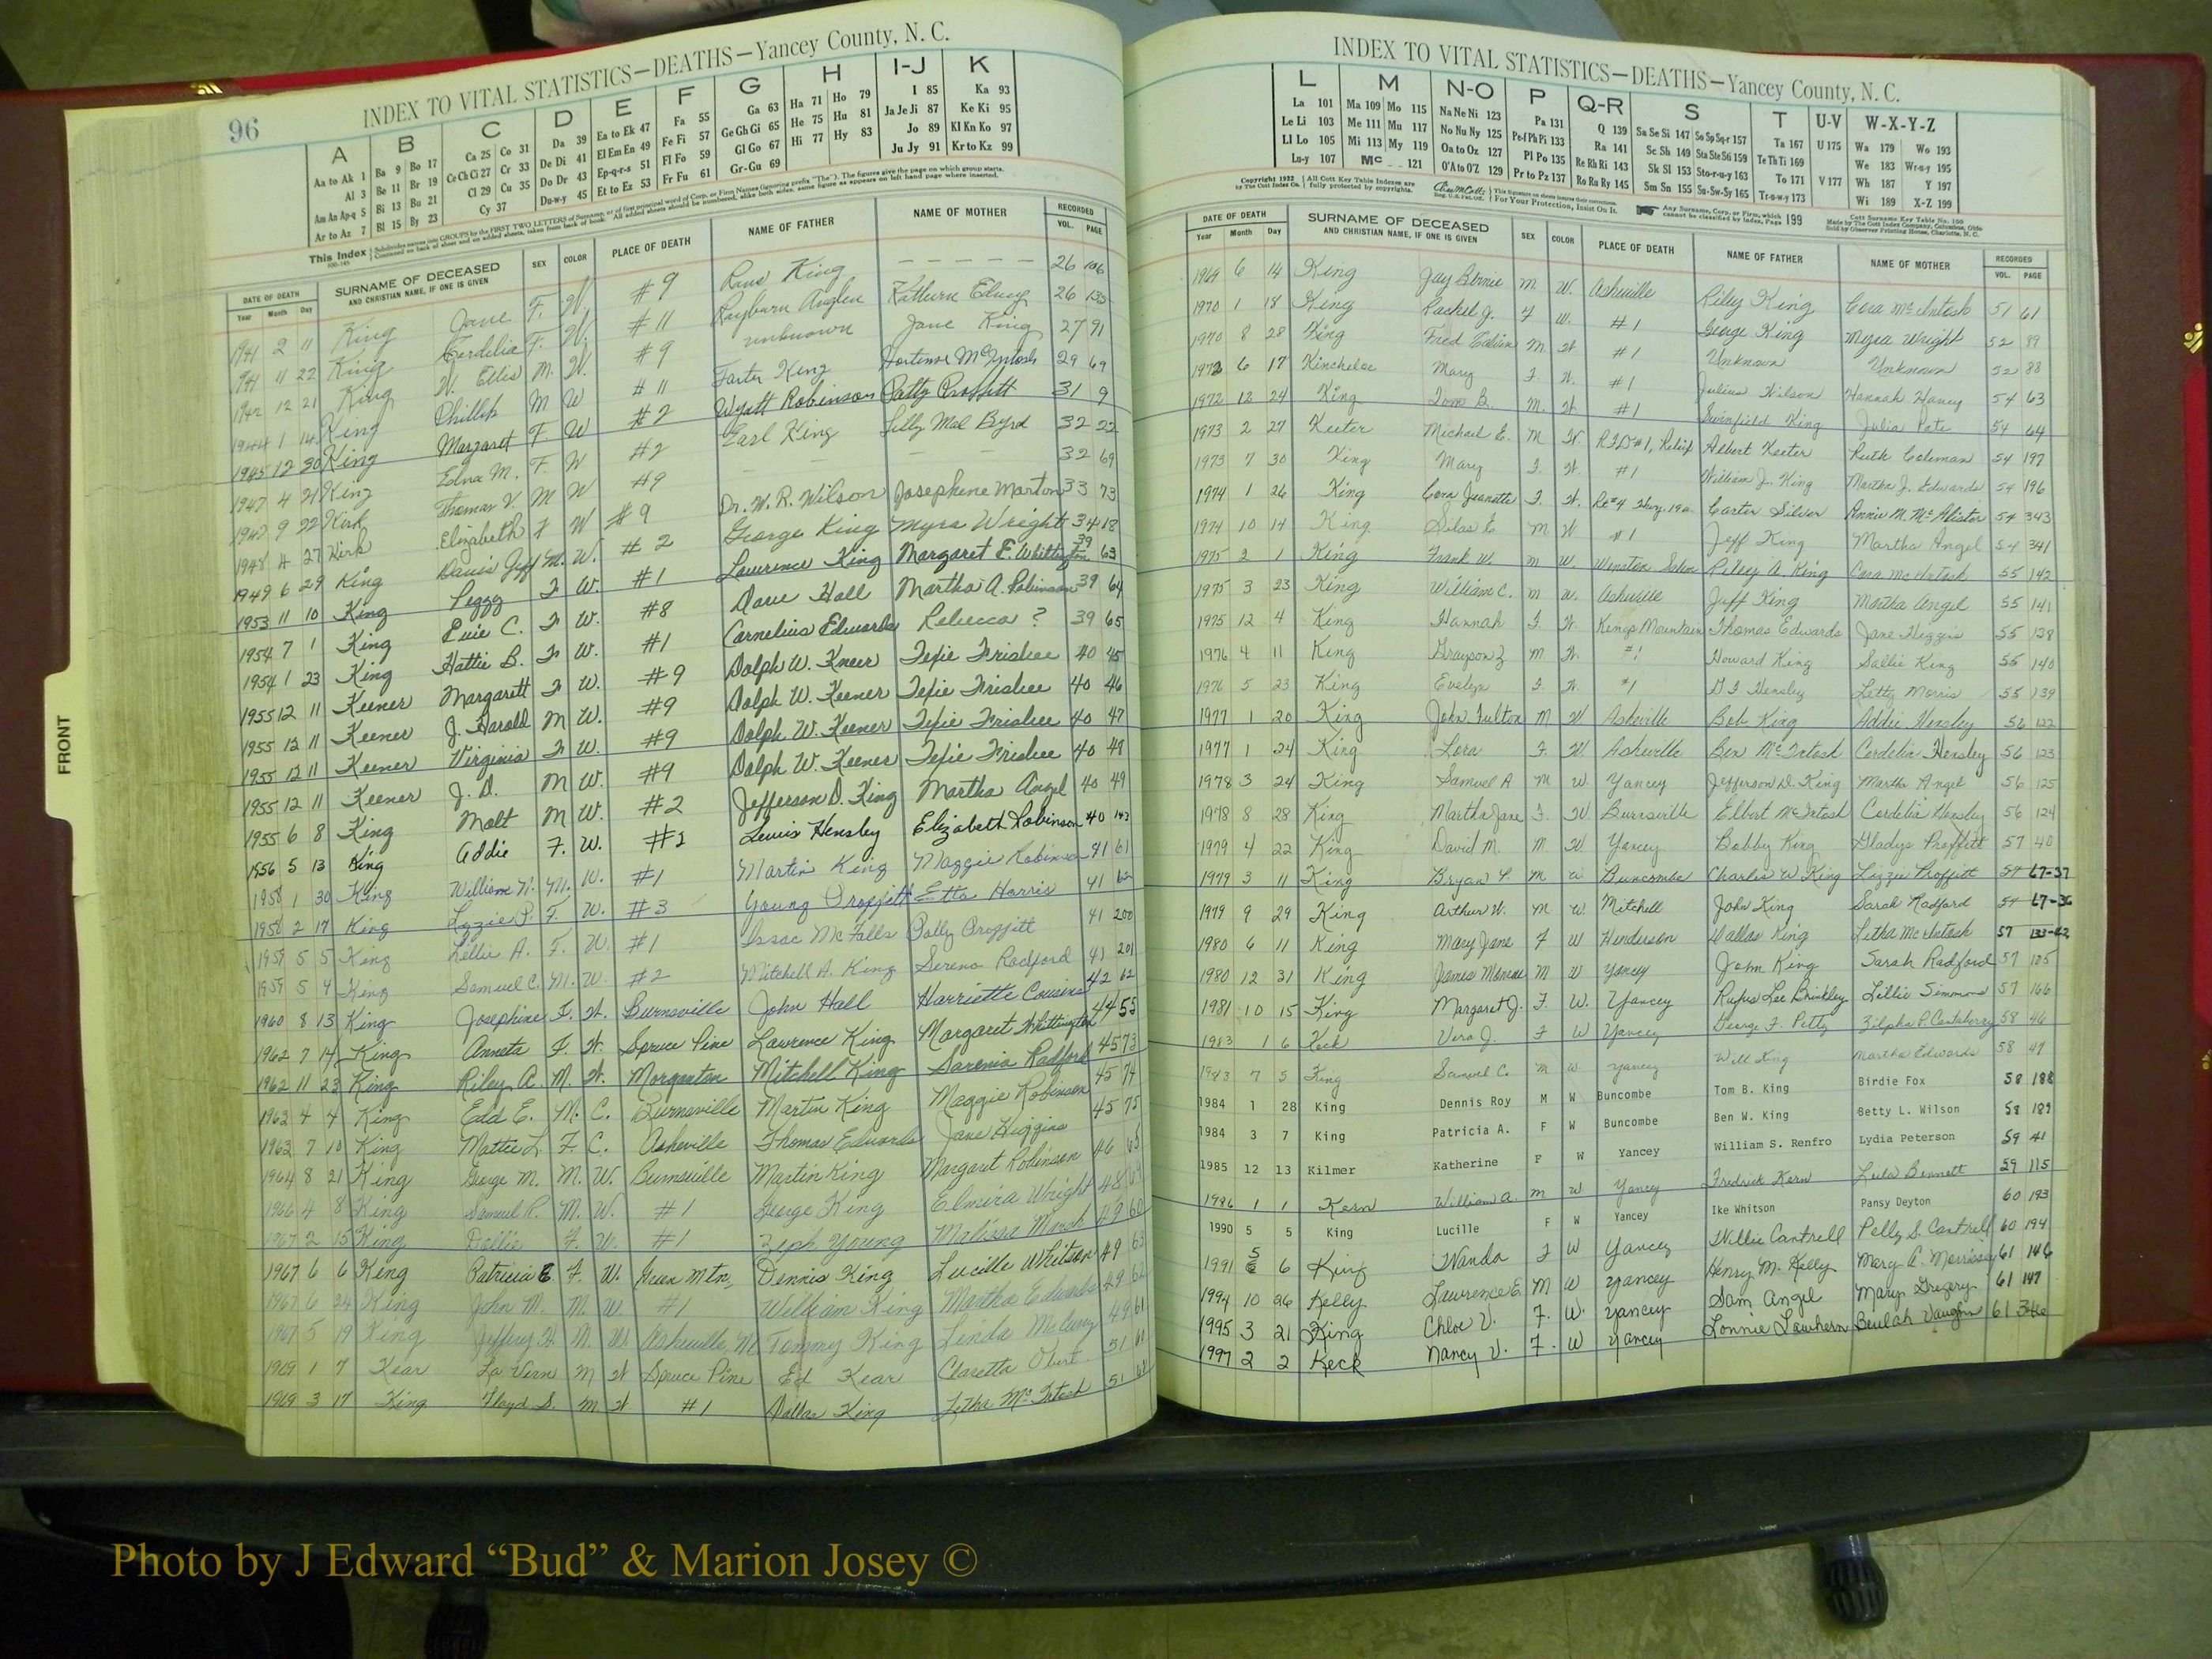 96
INDEX TO VITAL STATISTICS—DEATHS—Yancey County, N. C.
A B C D E F G H I-J K
Aa to Ak 1 Ba 9 Bo 17 Ca 25 Co 31 Da 39 Ea to Ek 47 Fa 55 Ga 63 Ha 71 Ho 79 I 85 Ka 93
Al 3 Be 11 Br 19 Ce Ch Ci 27 Cr 33 De Di 41 El Em En 49 Fe Fi 57 Ge Gh Gi 65 He 75 Hu 81 Ja Je Ji 87 Ke Ki 95
Am An Ap-q 5 Bi 13 Bu 21 Cl 29 Cu 35 Do Dr 43 Ep-q-r-s 51 Fl Fo 59 Gl Go 67 Hi 77 Hy 83 Jo 89 Kl Kn Ko 97
Ar to Az 7 Bl 15 By 23 Cy 37 Du-w-y 45 Et to Ez 53 Fr Fu 61 Gr-Gu 69 Ju Jy 91 Kr to Kz 99
This Index
DATE OF DEATH SURNAME OF DECEASED AND CHRISTIAN NAME, IF ONE IS GIVEN SEX COLOR PLACE OF DEATH NAME OF FATHER NAME OF MOTHER RECORDED
Year Month Day VOL. PAGE
1941 2 11 King Jane F. W. #9 King 26 106
1941 11 22 King Cordelia F. W. #11 Rayburn 26 135
1942 12 21 King W. Ellis M. W. #9 unknown Jane King 27 91
1944 1 14 King Phillip M W #11 Foster King Hortense McIntosh 29 69
1945 12 30 King Margaret F. W #2 Wyatt Robinson Patty Proffitt 31 9
1947 4 21 King Edna M. F. W #2 Earl King Lilly Mae Byrd 32 22
1947 9 22 Kirk Thomas V. M W #9 32 69
1948 4 27 Kirk Elizabeth F W #9 Dr. W. R. Wilson Josephine Morton 33 73
1949 6 29 King Davis Jeff M. W. #2 George King Myra Wright 34 18
1953 11 10 King Peggy F W. #1 Lawrence King Margaret E. Whittington 39 63
1954 7 1 King Evie C. F W. #8 Dave Hall Martha A. Robinson 39 64
1954 1 23 King Hattie B. F W. #1 Cornelius Edwards Rebecca ? 39 65
1955 12 11 Keener Margarett F W. #9 Dolph W. Keener Texie Frisbee 40 45
1955 12 11 Keener J. Harold M W. #9 Dolph W. Keener Texie Frisbee 40 46
1955 12 11 Keener Virginia F W. #9 Dolph W. Keener Texie Frisbee 40 47
1955 12 11 Keener J. D. M W. #9 Dolph W. Keener Texie Frisbee 40 49
1955 6 8 King Molt M W. #2 Jefferson D. King Martha Angel 40 49
1956 5 13 King Addie F. W. #1 Lewis Hensley Elizabeth Robinson 40 143
1958 1 30 King William N. M. W. #1 Martin King Maggie Robinson 41 61
1958 2 17 King Lizzie P. F. W. #3 Young Proffitt Etta Harris 41 62
1959 5 5 King Lillie A. F. W. #1 Isaac McFalls Polly Proffitt 41 200
1959 5 4 King Samuel C. M. W. #2 Mitchell A. King Serena Radford 41 201
1960 8 13 King Josephine F. W. Burnsville John Hall Harriette Cousins 42 62
1962 7 14 King Anneta F. W. Spruce Pine Lawrence King Margaret Whittington 44 55
1962 11 23 King Riley A. M. W. Morganton Mitchell King Sarenia Radford 45 73
1963 4 4 King Edd E. M. C. Burnsville Martin King Maggie Robinson 45 74
1963 7 10 King Mattie L. F. C. Asheville Thomas Edwards Jane Higgins 45 75
1964 8 21 King George M. M. W. Burnsville Martin King Margaret Robinson 46 65
1966 4 8 King Samuel R. M. W. #1 George King Elmira Wright 48
1967 2 15 King Dollie F. W. #1 Zeph Young Malissa March 49 60
1967 6 6 King Patricia E F. W. Green Mtn. Dennis King Lucille Whitson 49 63
1967 6 24 King John M. M. W #1 William King Martha Edwards 49 62
1967 5 19 King Jeffrey H. M. W Asheville, NC Tommy King Linda McCurry 49 61
1969 1 7 Kear La Vern M W Spruce Pine Ed Kear Claretta 51 61
1969 3 17 King Floyd S. M W #1 Dallas King Letha McIntosh 51
FRONT
INDEX TO VITAL STATISTICS—DEATHS—Yancey County, N. C.
L M N-O P Q-R S T U-V W-X-Y-Z
La 101 Ma 109 Mo 115 Na Ne Ni 123 Pa 131 Q 139 Sa Se Si 147 So Sp Sq-r 157 Ta 167 U 175 Wa 179 Wo 193
Le Li 103 Me 111 Mu 117 No Nu Ny 125 Pe-f Ph Pi 133 Ra 141 Sc Sh 149 Sta Ste Sti 159 Te Th Ti 169 We 183 Wr-u-y 195
Ll Lo 105 Mi 113 My 119 Oa to Oz 127 Pl Po 135 Re Rh Ri 143 Sk Sl 153 Sto-r-u-y 163 To 171 V 177 Wh 187 Y 197
Lu-y 107 Mc 121 O'A to O'Z 129 Pr to Pz 137 Ro Ru Ry 145 Sm Sn 155 Su-Sw-Sy 165 Tr-u-w-y 173 Wi 189 X-Z 199
Copyright 1932 All Cott Key Table Indexes are fully protected by copyrights. For Your Protection, Insist On It. Any Surname, Corp. or Firm, which cannot be classified by Index, Page 199
DATE OF DEATH SURNAME OF DECEASED AND CHRISTIAN NAME, IF ONE IS GIVEN SEX COLOR PLACE OF DEATH NAME OF FATHER NAME OF MOTHER RECORDED
Year Month Day VOL. PAGE
1969 6 14 King Jay Bernie M W. Asheville Riley King Cora McIntosh 51 61
1970 1 18 King Rachel J. F W. #1 George King Myra Wright 52 89
1970 8 28 King Fred M W #1 Unknown Unknown 52 88
1972 6 17 Kincheloe Mary F. W. #1 Julius Wilson Hannah Haney 54 63
1972 12 24 King Tom B. M. W #1 Swinfield King Julia Pate 54 64
1973 2 27 Keeter Michael E. M W RFD#1, Relief Albert Keeter Ruth Coleman 54 197
1973 7 30 King Mary F. W. #1 William J. King Martha J. Edwards 54 196
1974 1 26 King Cora Jeanette F. W. Rt #4 Hwy. 19E Carter Silver Annie M. McAlister 54 343
1974 10 14 King Silas E M W #1 Jeff King Martha Angel 54 341
1975 2 1 King Frank W. M W. Winston Salem Riley A. King Cora McIntosh 55 142
1975 3 23 King William C. M W. Asheville Jeff King Martha Angel 55 141
1975 12 4 King Hannah F. W. Kings Mountain Thomas Edwards Jane Higgins 55 138
1976 4 11 King Grayson Z M W. #1 Howard King Sallie King 55 140
1976 5 23 King Evelyn F. W #1 Hensley Letty Morris 55 139
1977 1 20 King John Fulton M W Asheville Bob King Addie Hensley 56 122
1977 1 24 King Lora F. W Asheville Ben McIntosh Cordelia Hensley 56 123
1978 3 24 King Samuel A M W. Yancey Jefferson D. King Martha Angel 56 125
1978 8 28 King Martha Jane F. W. Burnsville Elbert McIntosh Cordelia Hensley 56 124
1979 4 22 King David M. M W. Yancey Bobby King Gladys Proffitt 57 40
1979 3 11 King Bryan Y. M W Buncombe Charlie W King Lizzie Proffitt 57 67-37
1979 9 29 King Arthur W. M W. Mitchell John King Sarah Radford 57 67-36
1980 6 11 King Mary Jane F W Henderson Dallas King Letha McIntosh 57 133-42
1980 12 31 King James Monroe M W Yancey John King Sarah Radford 57 125
1981 10 15 King Margaret J. F. W. Yancey Rufus Lee Brinkley Lillie Simmons 57 166
1983 1 6 Keck Vera J. F W Yancey George F. Petty Zilpha P. Canterberry 58 46
1983 7 5 King Samuel C. M W. Yancey Will King Martha Edwards 58 47
1984 1 28 King Dennis Roy M W Buncombe Tom B. King Birdie Fox 58 188
1984 3 7 King Patricia A. F W Buncombe Ben W. King Betty L. Wilson 58 189
1985 12 13 Kilmer Katherine F W Yancey William S. Renfro Lydia Peterson 59 41
1986 1 1 Kern William A. M W Yancey Fredrick Kern Lula Bennett 59 115
1990 5 5 King Lucille F W Yancey Ike Whitson Pansy Deyton 60 193
1991 5 6 King Wanda F W Yancey Willie Cantrell Polly S. Cantrell 60 194
1994 10 26 Kelly Lawrence E. M W Yancey Henry M. Kelly Mary A. Morrissey 61 146
1995 3 21 King Chloe V. F. W. Yancey Sam Angel Mary Gregory 61 147
1997 2 2 Keck Nancy V. F. W Yancey Lonnie Lawhern Beulah Vaughn 61 346
Photo by J Edward “Bud” & Marion Josey ©